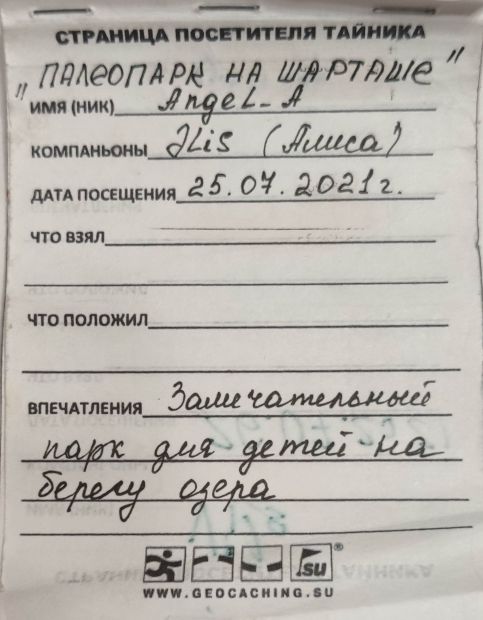 СТРАНИЦА ПОСЕТИТЕЛЯ ТАЙНИКА
"ПАЛЕОПАРК НА ШАРТАШЕ"
ИМЯ (НИК) AngeL_A
КОМПАНЬОНЫ ALis (Алиса)
ДАТА ПОСЕЩЕНИЯ 25.07.2021г.
ЧТО ВЗЯЛ
ЧТО ПОЛОЖИЛ
ВПЕЧАТЛЕНИЯ Замечательный
парк для детей на
берегу озера
.su ®
WWW.GEOCACHING.SU